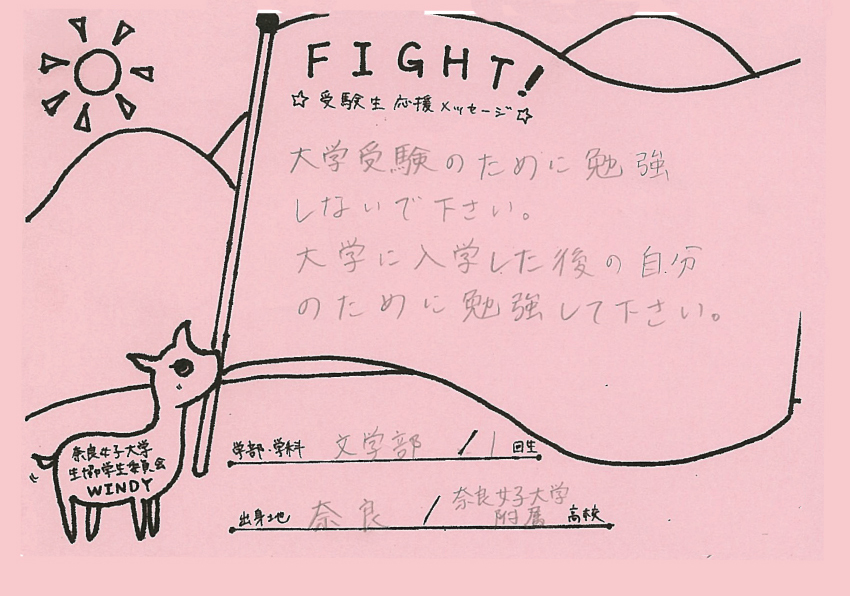 FIGHT!
☆受験生応援メッセージ☆
大学受験のために勉強
しないで下さい。
大学に入学した後の自分
のために勉強して下さい。
奈良女子大学
生協学生委員会
WINDY
学部・学科 文学部 / 1 回生
出身地 奈良 / 奈良女子大学
附属 高校